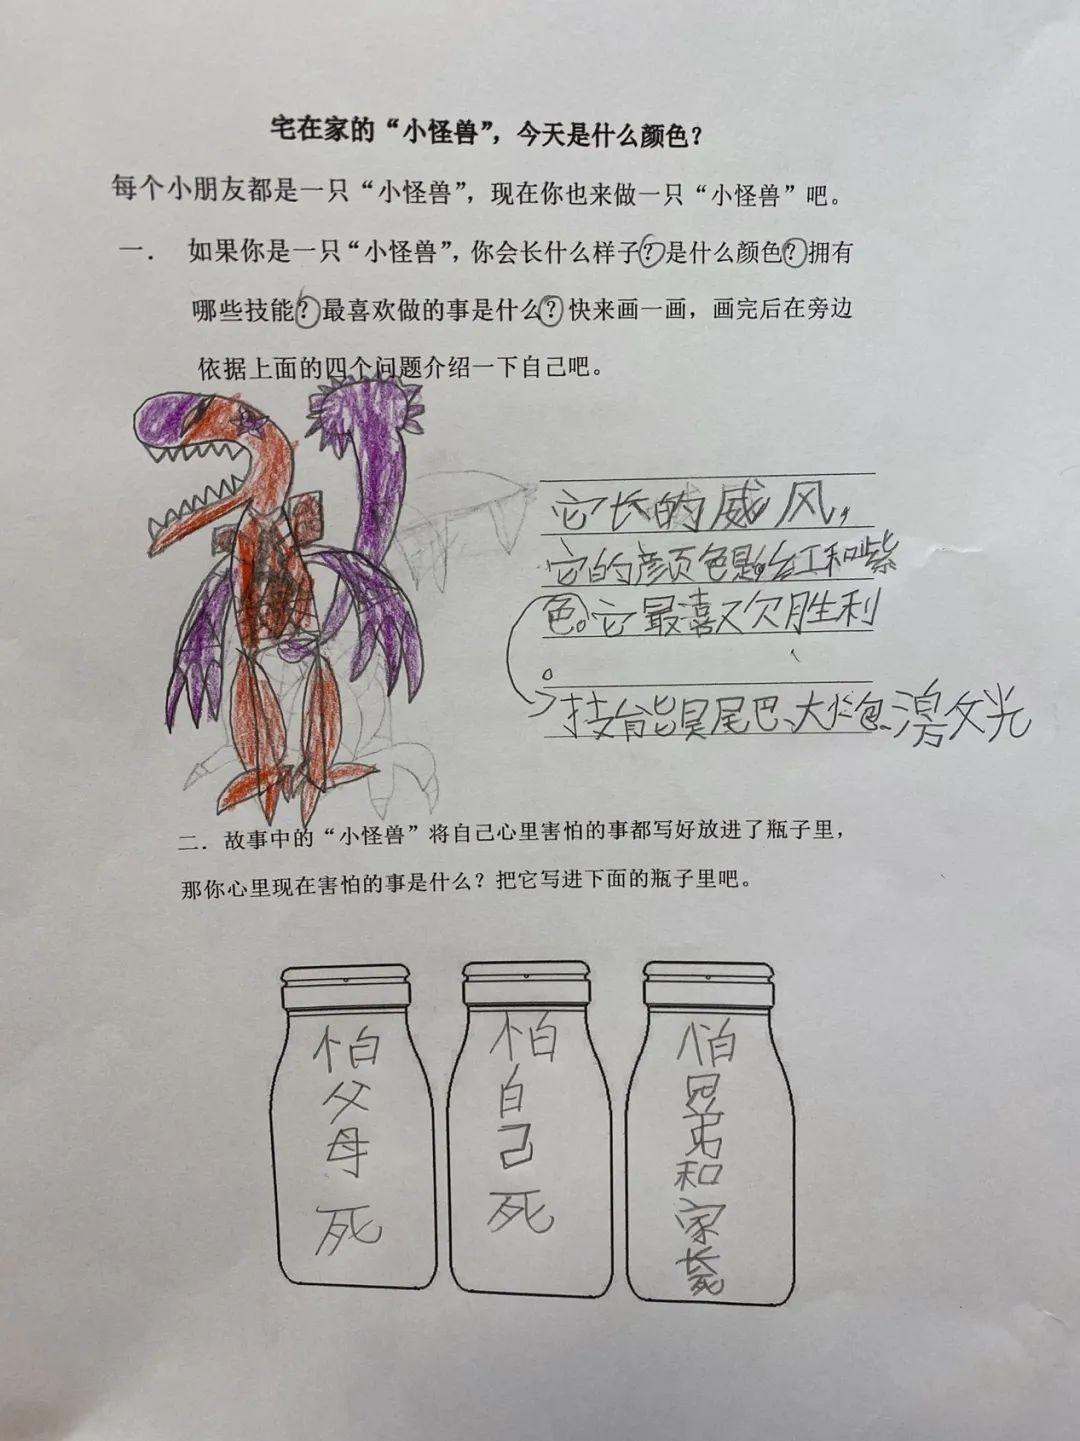 宅在家的“小怪兽”，今天是什么颜色？
每个小朋友都是一只“小怪兽”，现在你也来做一只“小怪兽”吧。
一． 如果你是一只“小怪兽”，你会长什么样子？是什么颜色？拥有
哪些技能？最喜欢做的事是什么？快来画一画，画完后在旁边
依据上面的四个问题介绍一下自己吧。
它长的威风，
它的颜色是红和紫
色。它最喜欢胜利
。
技能是尾巴、大炮、激光
二．故事中的“小怪兽”将自己心里害怕的事都写好放进了瓶子里，
那你心里现在害怕的事是什么？把它写进下面的瓶子里吧。
怕父母死
怕自己死
怕兄弟和家长死